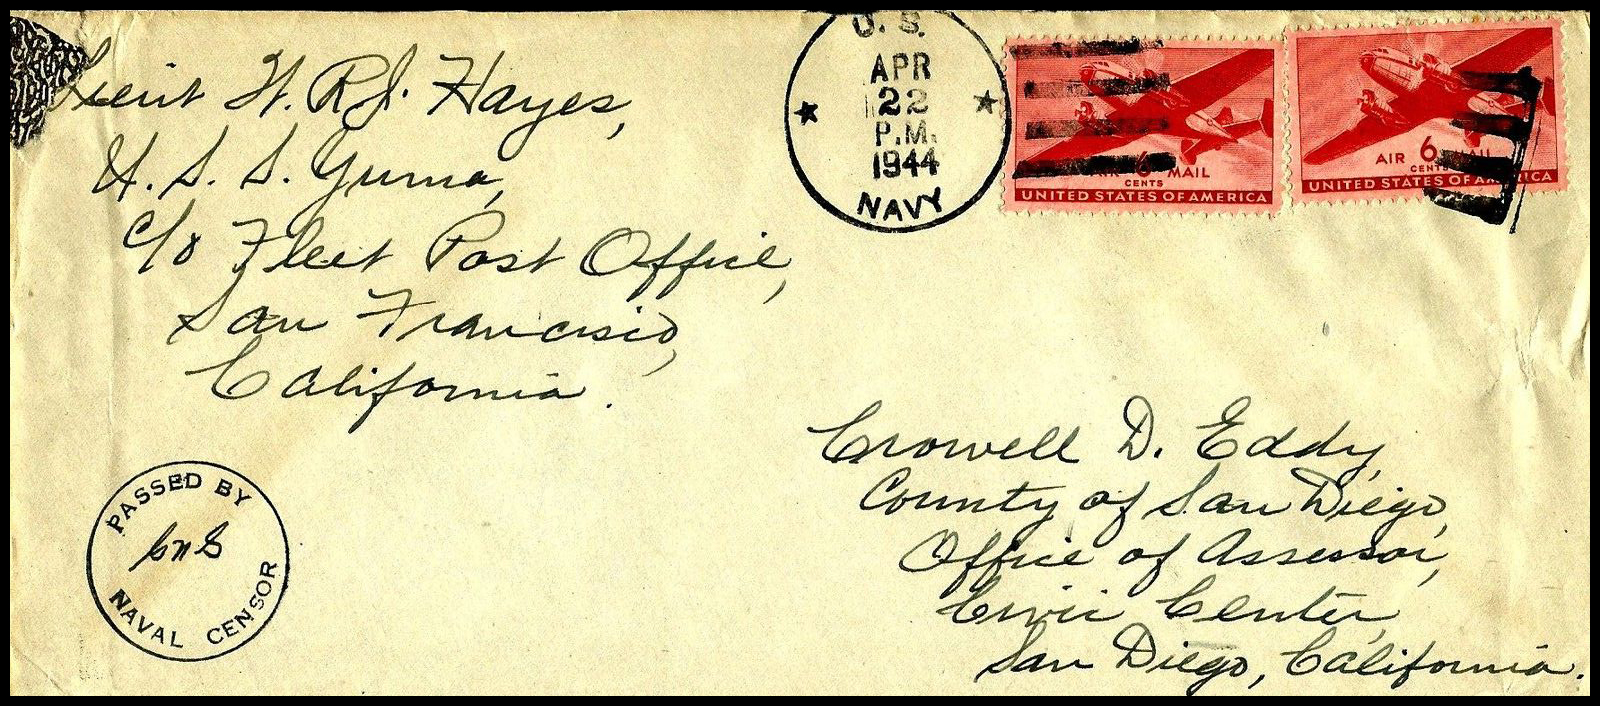 Lieut W. R. J. Hayes,
U. S. S. Yuma,
c/o Fleet Post Office,
San Francisco,
California.
U. S.
APR
22
P.M.
1944
NAVY
AIR 6 MAIL
CENTS
UNITED STATES OF AMERICA
AIR 6 MAIL
CENTS
UNITED STATES OF AMERICA
PASSED BY
NAVAL CENSOR
Crowell D. Eddy,
County of San Diego,
Office of Assessor,
Civic Center,
San Diego, California.